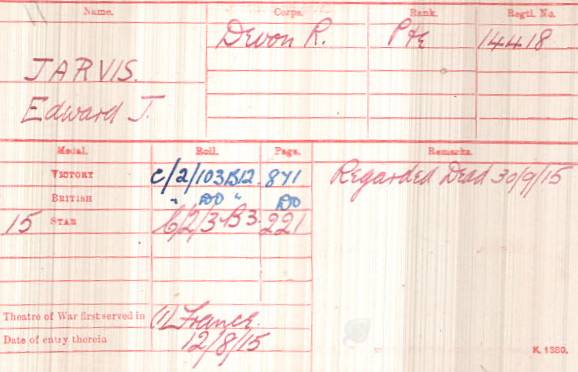 Name. Corps. Rank. Regtl. No.
Devon R. Pte 14418
JARVIS.
Edward J.
Medal. Roll. Page. Remarks.
VICTORY C/2/103B12. 871 Regarded Dead 30/9/15
BRITISH " DO " DO
15 STAR C/2/3 B3. 221
Theatre of War first served in (1) France.
Date of entry therein 12/8/15
K. 1380.